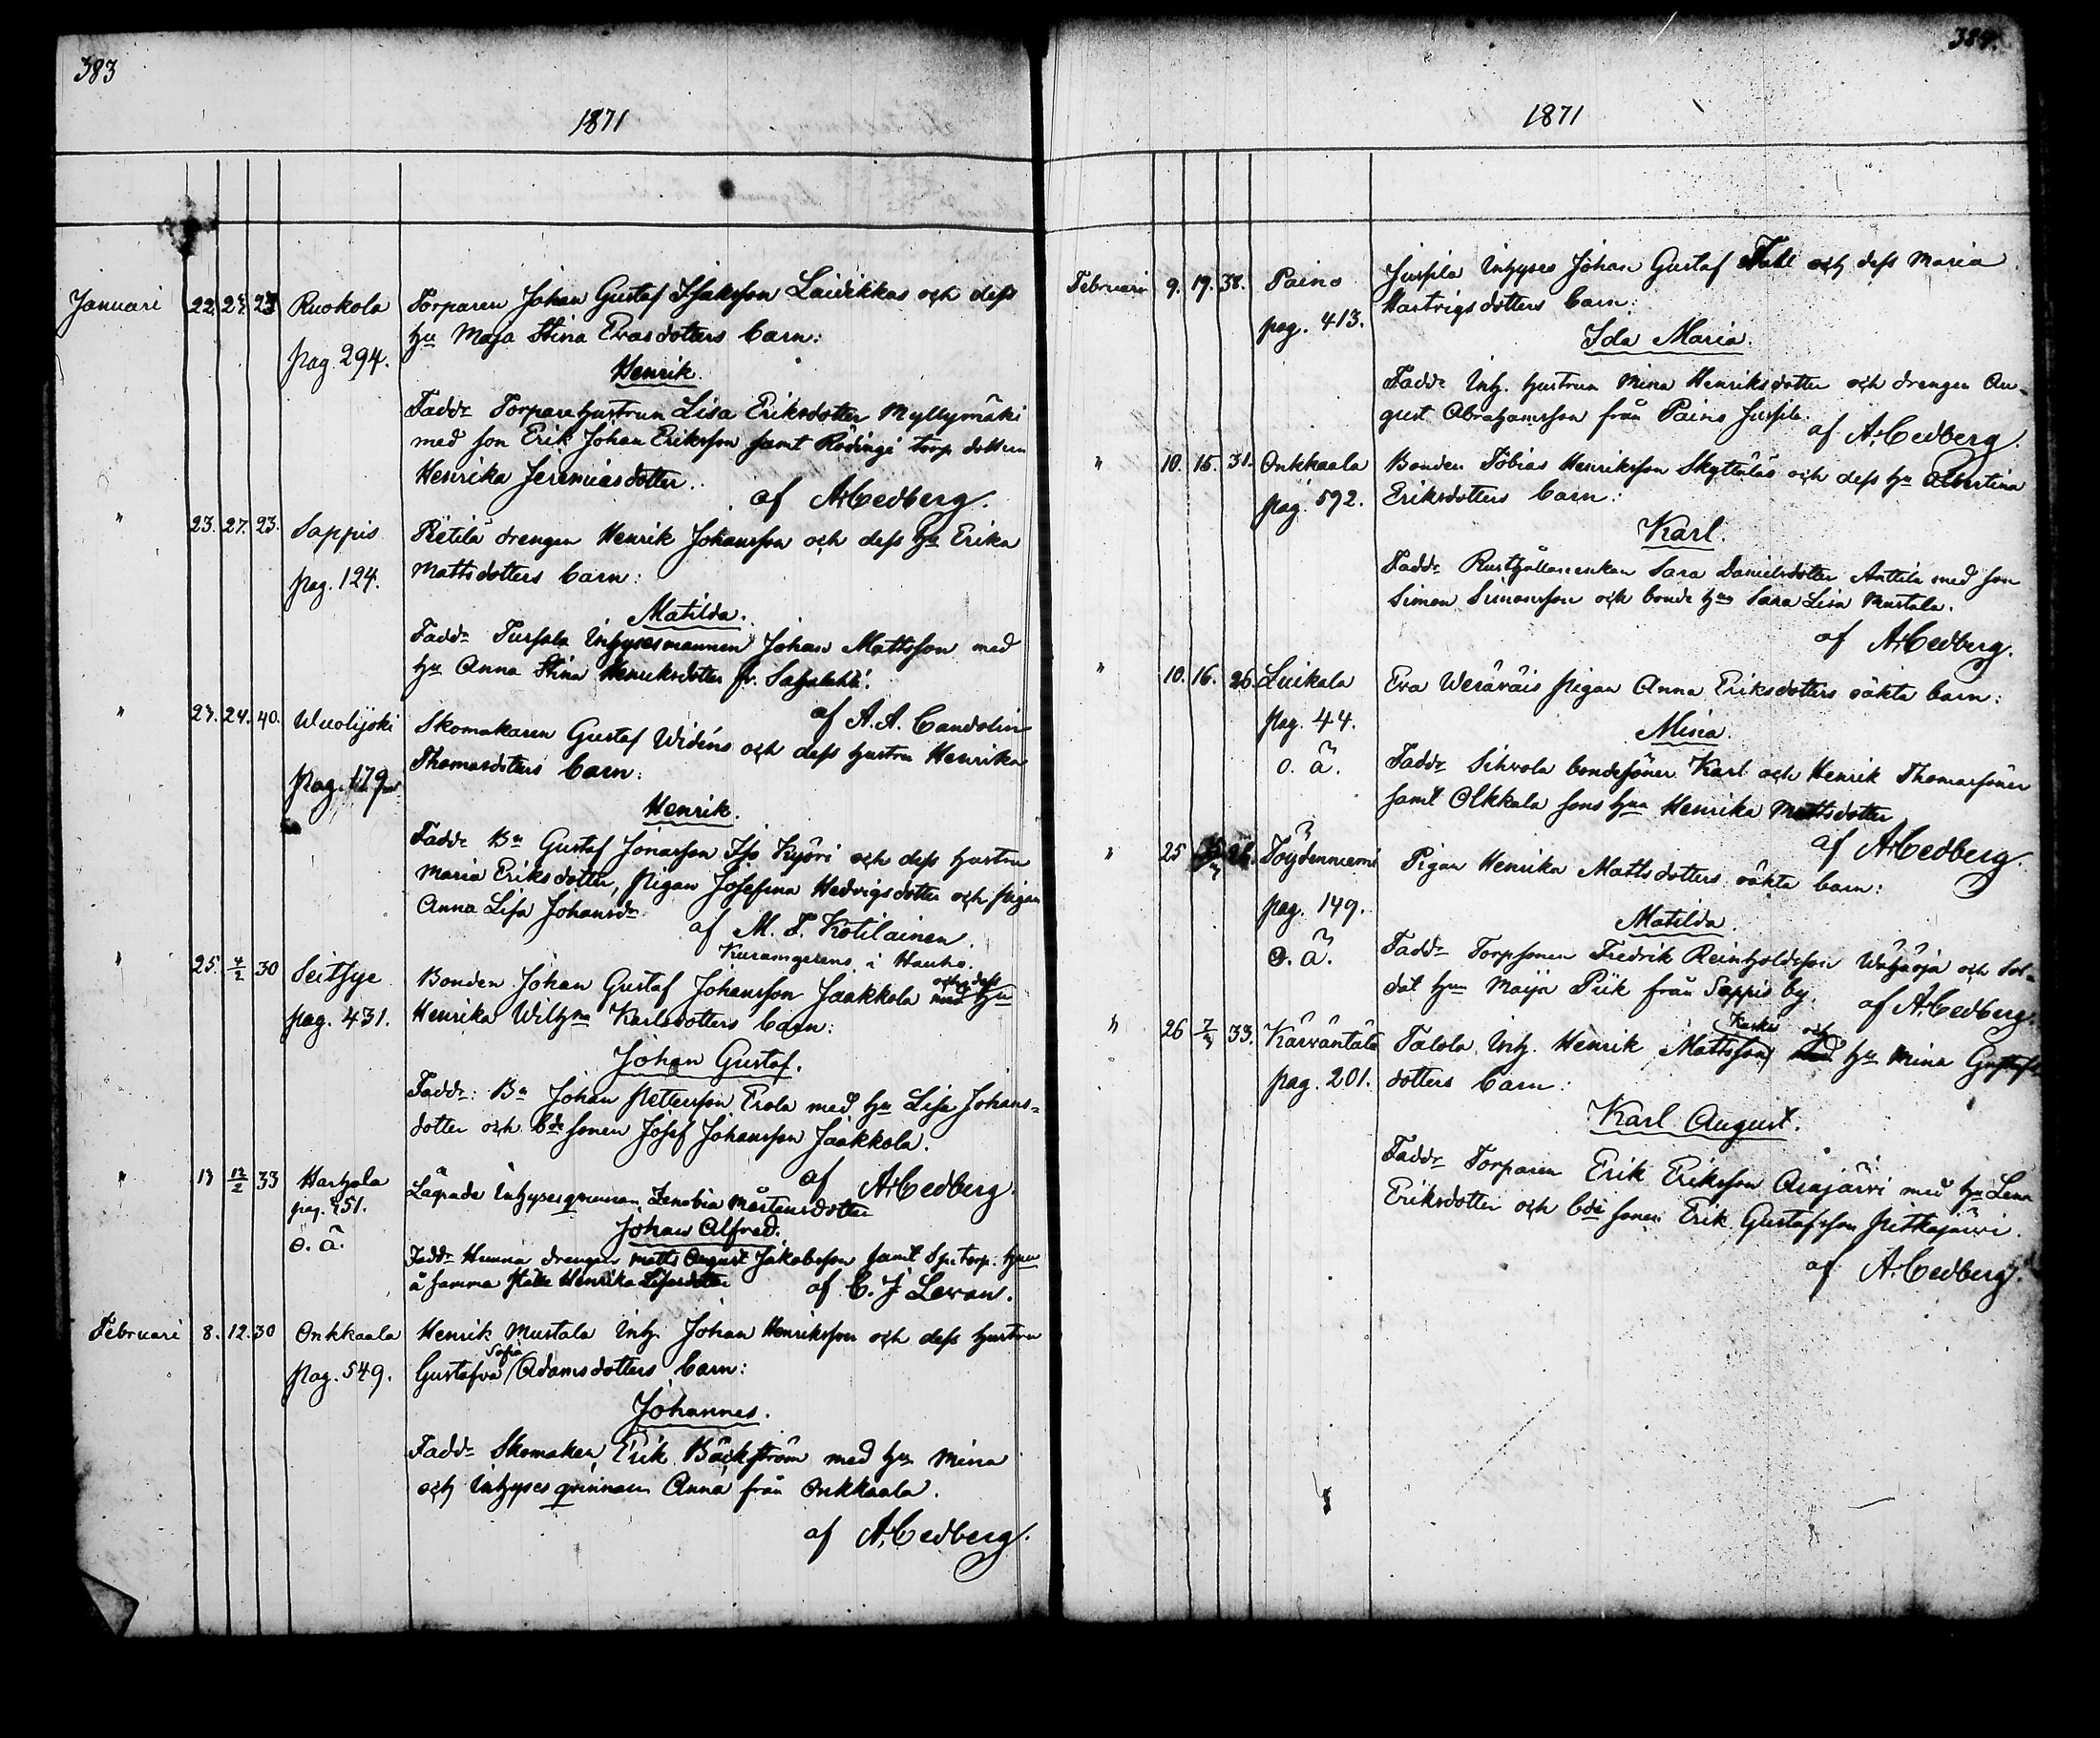 383
1871
Januari 22. 24. 23 Ruokola Torparen Johan Gustaf Isaksson Laidikkas och dess
pag. 294. Hu Maja Stina Evasdotters barn:
Henrik.
Faddr Torparehustrun Lisa Eriksdotter Myllymäki
med son Erik Johan Eriksson samt Rödingi torp dottern
Henrika Jeremiasdotter.
af A. Cedberg.
" 23. 27. 23. Sappis Pietilä drengen Henrik Johansson och dess Hu Erika
pag. 124. Mattsdotters barn:
Matilda.
Faddr Tursola Inhysesmannen Johan Mattsson med
Hu Anna Stina Henriksdotter fr. Sahalahti.
af A. A. Candolin
" 24. 40. Wuolijoki Skomakaren Gustaf Widéns och dess hustru Henrika
pag. 179 Thomasdotters barn:
Henrik.
Faddr Bn Gustaf Jonasson Iso Kyöri och dess hustru
Maria Eriksdotter, pigan Josefina Hedvigsdotter och pigan
Anna Lisa Johansdr
af M. F. Kotilainen.
i Hauho.
" 25. 4/2 30 Seitsye Bonden Johan Gustaf Johansson Jaakkola och dess Hu
pag. 431. Henrika Wilhna Karlsdotters barn:
Johan Gustaf.
Faddr: Bn Johan Pettersson Erola med hu Lisa Johans-
dotter och bde sonen Josef Johansson Jaakkola.
af A. Cedberg.
" 13 12/2 33 Harhala Lägrade Inhysesqvinnan Zenobia Mårtensdotter
pag. 251. Johan Alfred.
o. ä. Faddr Hunna drengen Matts August Jakobsson samt Spr torp. Hun
å samma ställe Henrika Lisasdotter af C. J. Levan.
Februari 8. 12. 30 Onkkaala Henrik Mustala Inh. Johan Henriksson och dess hustru
Sofia
pag. 549. Gustafva Adamsdotters barn:
Johannes.
Faddr Skomaker Erik Bäckström med Hu Mina
och Inhyses qvinnan Anna från Onkkaala.
af A. Cedberg.
384.
1871
Februari 9. 19. 38. Paino Jussila Inhyses Johan Gustaf Fall och dess Maria
pag. 413. Hartvigsdotters barn:
Ida Maria.
Faddr Inh. hustrun Mina Henriksdotter och drengen Au-
gust Abrahamsson från Paino Jussila.
af A. Cedberg.
" 10. 15. 31. Onkkaala Bonden Tobias Henriksson Skyttäläs och dess Hu Albertina
pag. 592. Eriksdotters barn:
Karl.
Faddr Rusthållareenkan Sara Danielsdotter Anttila med son
Simon Simonsson och bonde hun Sara Lisa Mustala.
af A. Cedberg.
" 10. 16. 26. Luikala Eva Weräväis pigan Anna Eriksdotters oäkta barn:
pag. 44. Mina.
o. ä. Faddr Sihvola bondesöner Karl och Henrik Thomassöner
samt Olkkala sons hun Henrika Mattsdotter
af A. Cedberg.
" 25 26. Töydenniemi Pigan Henrika Mattsdotters oäkta barn:
pag. 149. Matilda.
o. ä. Faddr Torpsonen Fredrik Reinholdsson Wähäoja och Sol-
dat hun Maija Piik från Sappis by.
af A. Cedberg.
" 26 7/3 33. Kärväntälä Talola Inh. Henrik Mattsson och Hu Mina Gustafs
pag. 201. dotters barn:
Karl August.
Faddr Torparen Erik Eriksson Asajärvi med Hu Lena
Eriksdotter och bde sonen Erik Gustafsson Pitkajärvi.
af A. Cedberg.